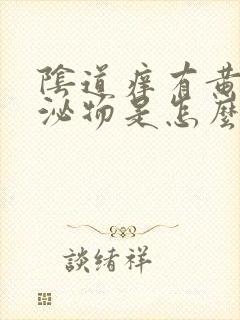 陰道痒有黃
泌物是怎麼
談绪祥